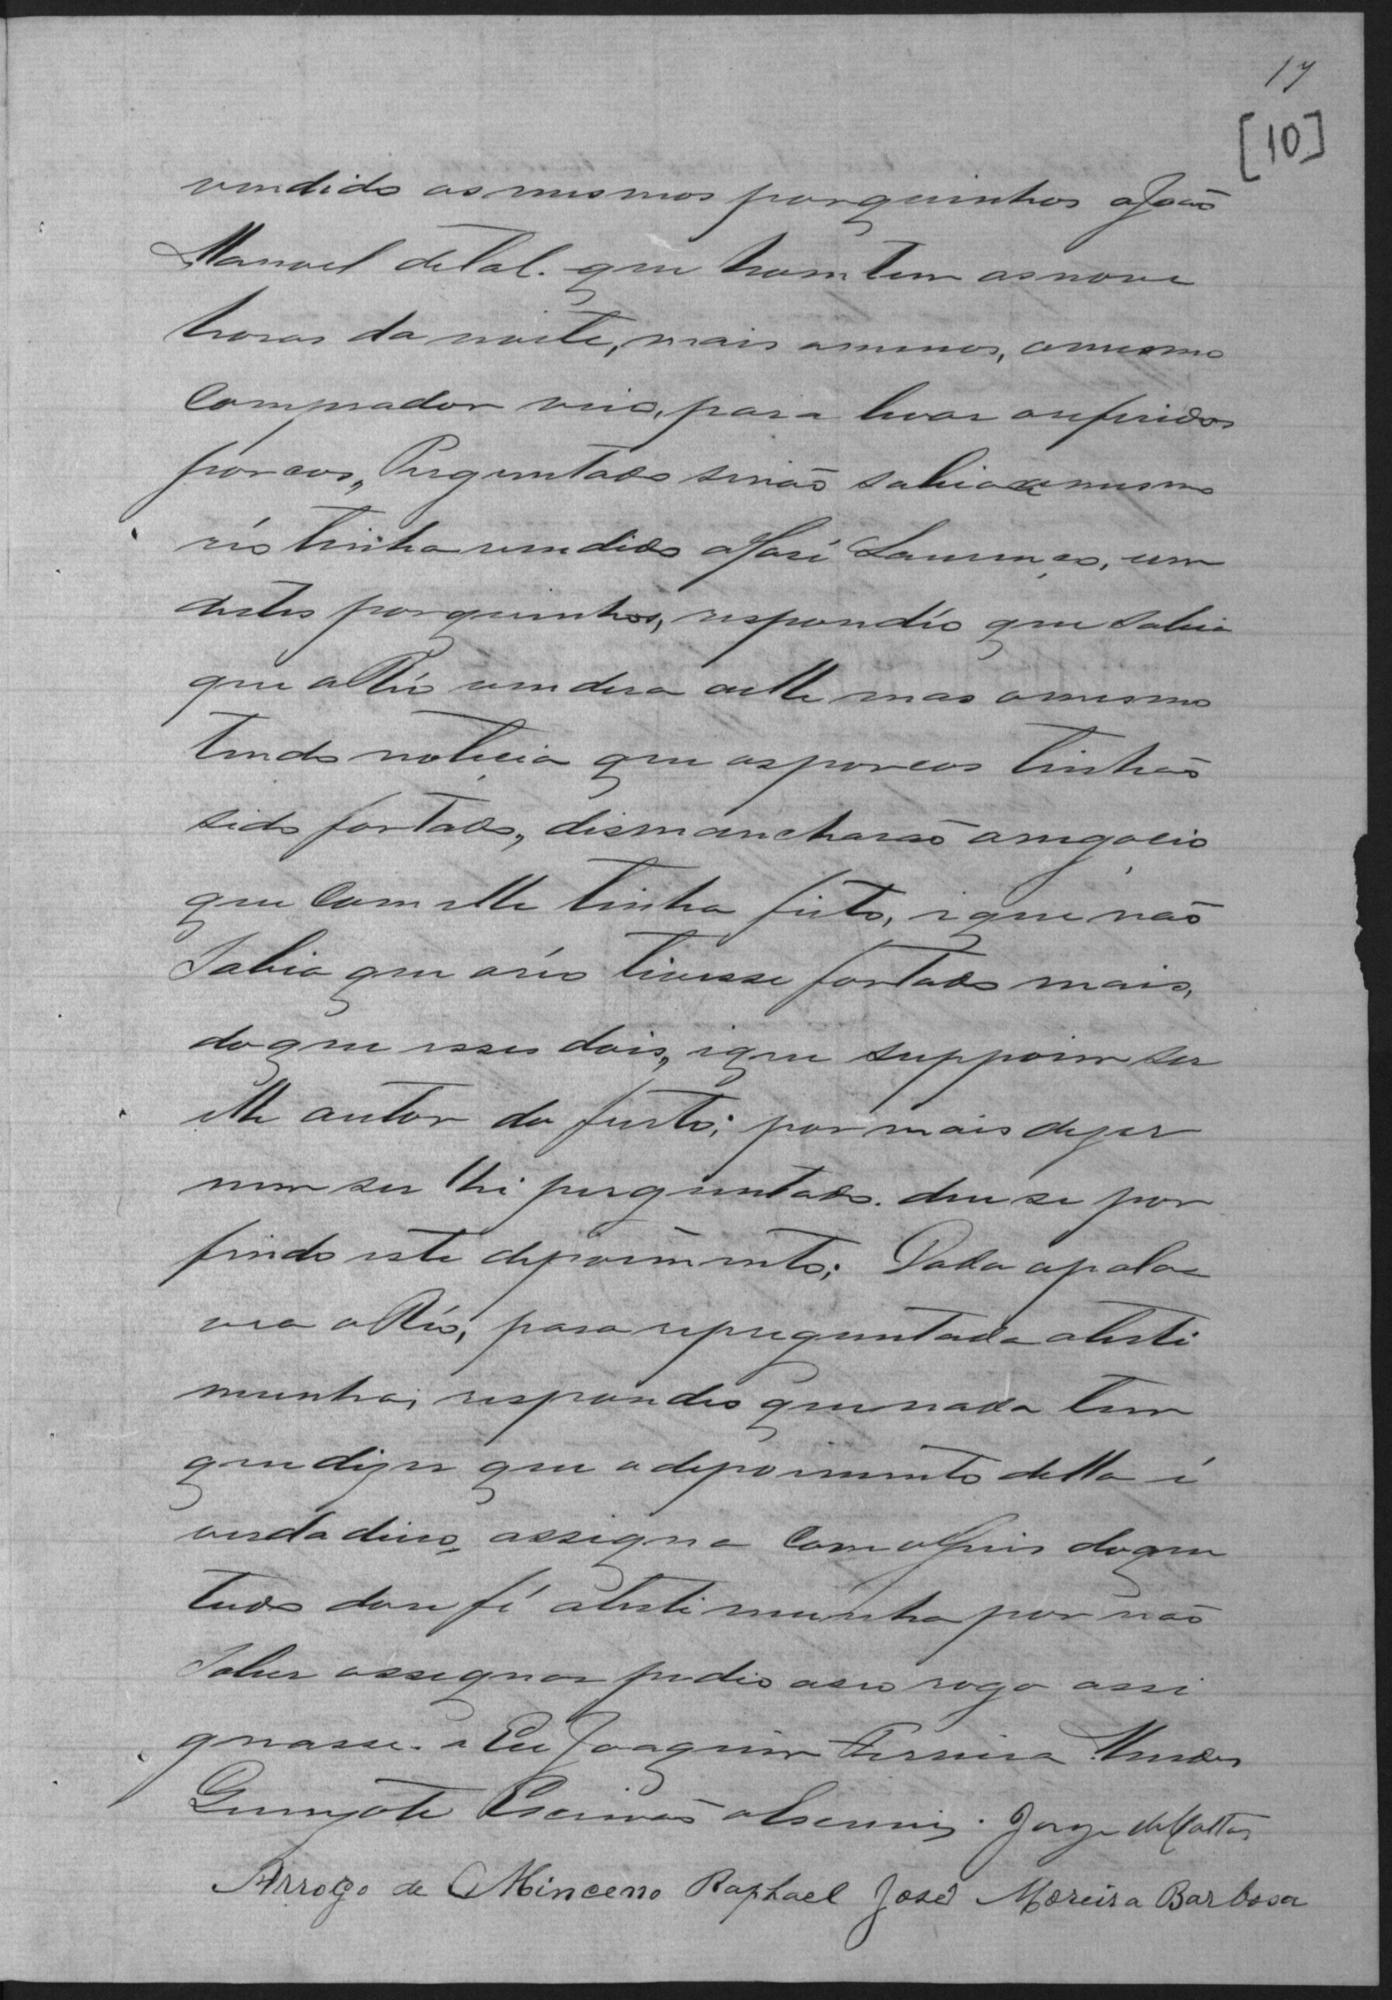 17
[10]
vendido os mesmos porquinhos a João
Manoel de Tal. que hontem as nove
horas da noite, mais a menos, o mesmo
comprador veio, para levar os referidos
porcos, Perguntado se não sabia o mesmo
réo tinha vendido a José Lourenço, um
destes porquinhos, respondío que sabia
que o Réo vendera a elle mas o mesmo
tendo noticia que os porcos tinhão
sido fortado, dismancharão o negocio
que com elle tinha feito, e que não
Sabia que o réo tivesse fortado mais,
do que esses dois, e que suppoim ser
elle autor do furto; por mais dezer
nem ser lhe perguntado. deu se por
findo este depoimento; Dada a pala
vra o Réo, para reperguntada a testi
munha, respondeo que nada tem
que dizer que o depoimento della é
verdadeiro, assigna com o Juis do que
tudo dou fé a testimunha por não
Saber assegnar pedio a seu rogo assi
gnasse. e Eu Joaquim Ferreira Mendes
Escrivão o escrevi. Jorge de Mattos
Arrogo de Minceno Raphael José Moreira Barbosa